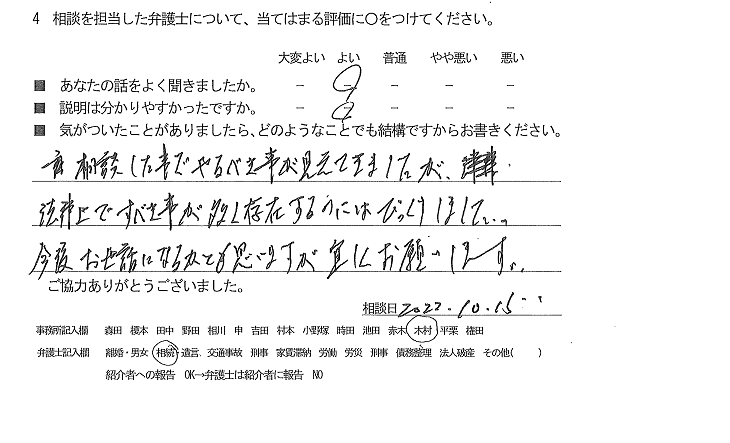 4 相談を担当した弁護士について、当てはまる評価に○をつけてください。
大変よい よい 普通 やや悪い 悪い
■ あなたの話をよく聞きましたか。 － － － － －
■ 説明は分かりやすかったですか。 － － － － －
■ 気がついたことがありましたら、どのようなことでも結構ですからお書きください。
相談した事でやるべき事が見えてきましたが、
法律上ですべき事が多く存在するのにはびっくりしました。
今後お世話になるかとも思いますが宜しくお願いします。
ご協力ありがとうございました。
相談日 2022.10.15
事務所記入欄 森田 榎本 田中 野田 相川 申 吉田 村本 小野塚 時田 池田 赤木 木村 平栗 権田
弁護士記入欄 離婚・男女 相続・遺言 交通事故 刑事 家賃滞納 労働 労災 刑事 債務整理 法人破産 その他( )
紹介者への報告 OK→弁護士は紹介者に報告 NO